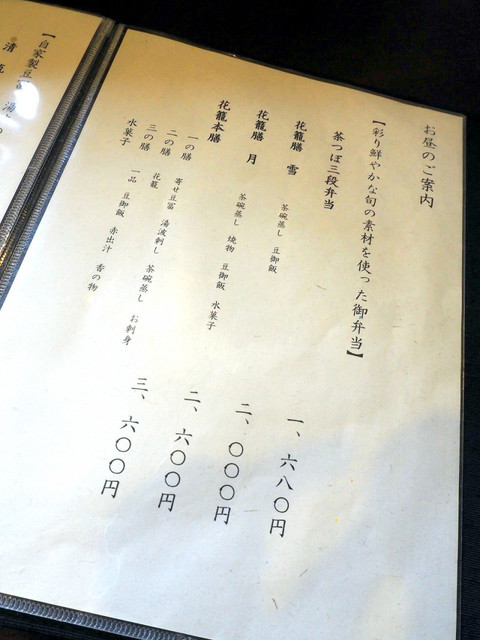 お昼のご案内
【彩り鮮やかな旬の素材を使った御弁当】
茶つぼ三段弁当 一、六八〇円
花籠膳 雪 茶碗蒸し 豆御飯 二、〇〇〇円
花籠膳 月 茶碗蒸し 焼物 豆御飯 水菓子 二、六〇〇円
花籠本膳 三、六〇〇円
一の膳 寄せ豆冨 湯波刺し 茶碗蒸し お刺身
二の膳 花籠
三の膳 一品 豆御飯 赤出汁 香の物
水菓子
【自家製豆冨 湯